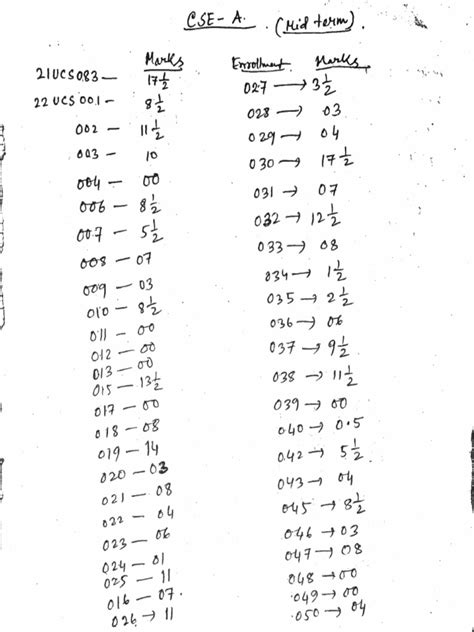 CSE-A. (Mid term).
Marks
21UCS083 — 17 1/2
22UCS001 — 8 1/2
002 — 11 1/2
003 — 10
004 — 00
006 — 8 1/2
007 — 5 1/2
008 — 07
009 — 03
010 — 8 1/2
011 — 00
012 — 00
013 — 00
015 — 13 1/2
017 — 00
018 — 08
019 — 14
020 — 03
021 — 08
022 — 04
023 — 06
024 — 01
025 — 11
016 — 07
026 → 11
Enrollment Marks
027 → 3 1/2
028 → 03
029 → 04
030 → 17 1/2
031 → 07
032 → 12 1/2
033 → 08
034 → 1 1/2
035 → 2 1/2
036 → 06
037 → 9 1/2
038 → 11 1/2
039 → 00
040 → 0.5
042 → 5 1/2
043 → 04
045 → 8 1/2
046 → 03
047 → 08
048 → 00
049 → 00
050 → 04